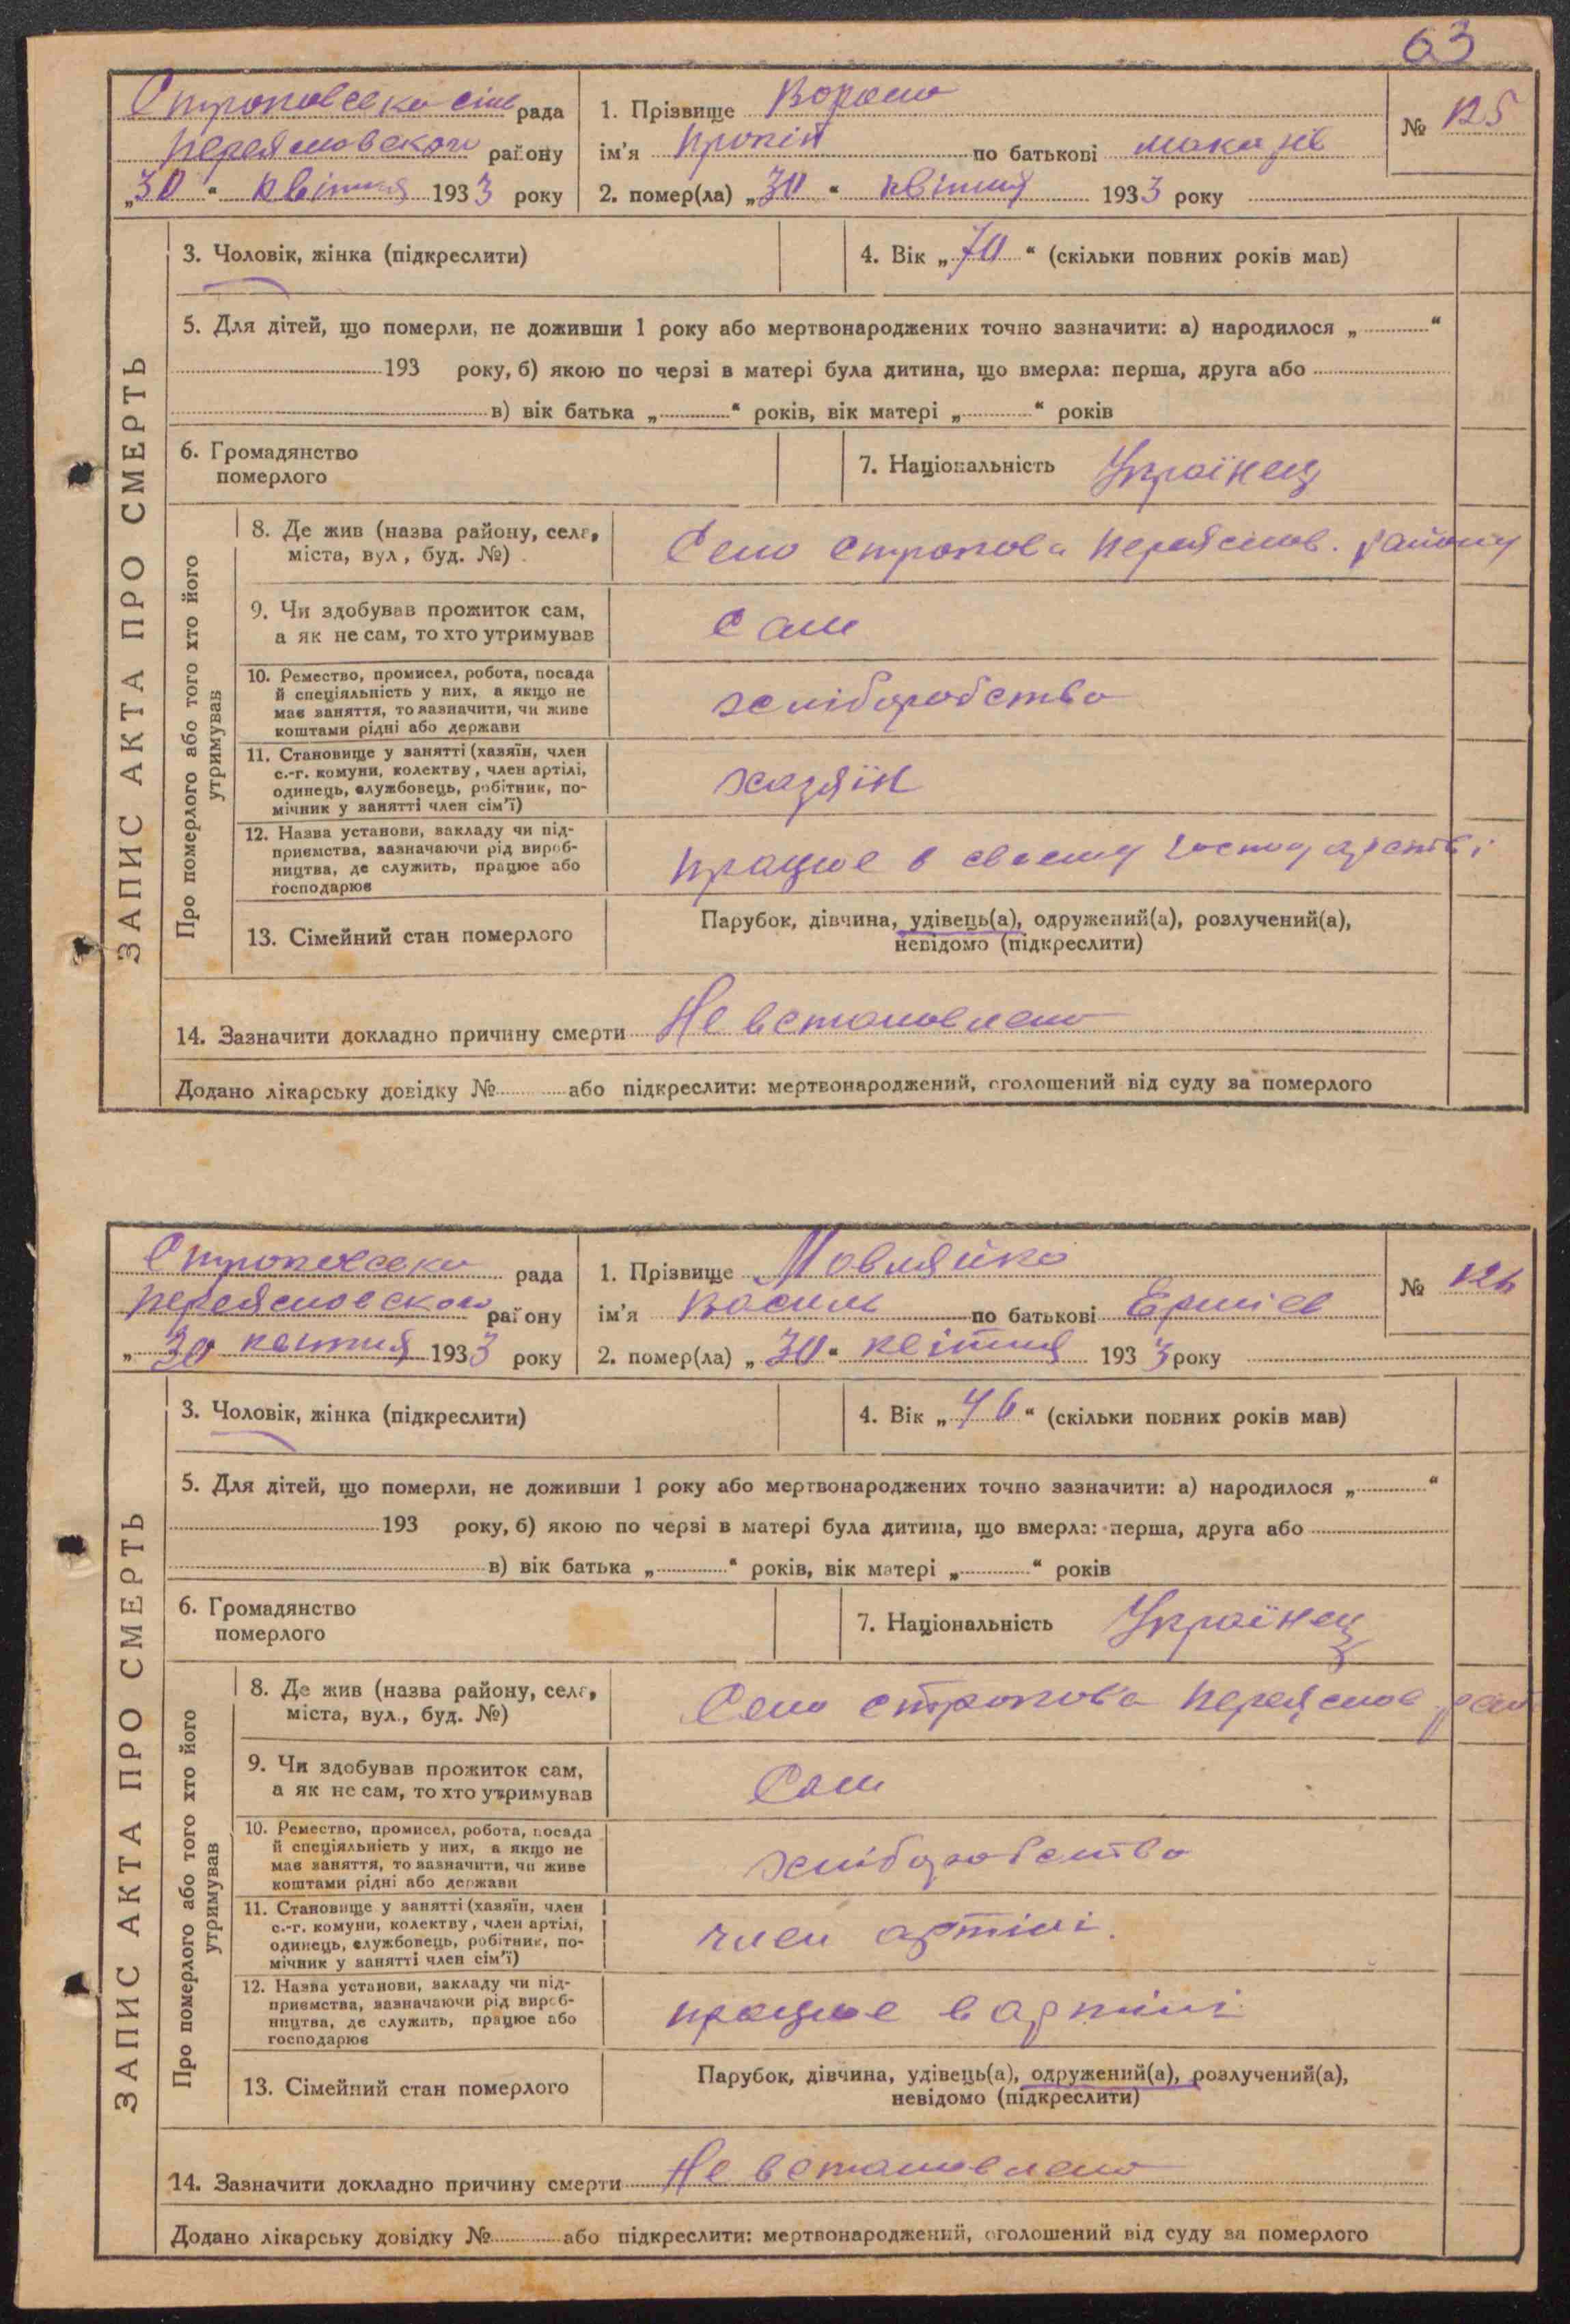 63
Строковська сіл рада
Переясловского району
„30“ квітня 1933 року
1. Прізвище
ім'я Прокіп по батькові
2. помер(ла) „30“ квітня 1933 року
№ 125
ЗАПИС АКТА ПРО СМЕРТЬ
3. Чоловік, жінка (підкреслити)
4. Вік „70“ (скільки повних років мав)
5. Для дітей, що померли, не доживши 1 року або мертвонароджених точно зазначити: а) народилося „ “
193 року, б) якою по черзі в матері була дитина, що вмерла: перша, друга або
в) вік батька „ “ років, вік матері „ “ років
6. Громадянство
померлого
7. Національність Українец
Про померлого або того хто його
утримував
8. Де жив (назва району, села,
міста, вул, буд. №)
Село Строкова Переяслов. району
9. Чи здобував прожиток сам,
а як не сам, то хто утримував
Сам
10. Ремество, промисел, робота, посада
й спеціяльність у них, а якщо не
має заняття, то зазначити, чи живе
коштами рідні або держави
хліборобство
11. Становище у занятті (хазяїн, член
с.-г. комуни, колектву, член артілі,
одинець, службовець, робітник, по-
мічник у занятті член сім'ї)
хазяїн
12. Назва установи, закладу чи під-
приємства, зазначаючи рід вироб-
ництва, де служить, працює або
господарює
працює в своєму господарстві
13. Сімейний стан померлого
Парубок, дівчина, удівець(а), одружений(а), розлучений(а),
невідомо (підкреслити)
14. Зазначити докладно причину смерти Не встановлено
Додано лікарську довідку № або підкреслити: мертвонароджений, оголошений від суду за померлого
Строковська рада
Переясловского району
„30 квітня 1933 року
1. Прізвище Мовляйко
ім'я Василь по батькові
2. помер(ла) „30“ квітня 1933 року
№ 126
ЗАПИС АКТА ПРО СМЕРТЬ
3. Чоловік, жінка (підкреслити)
4. Вік „46“ (скільки повних років мав)
5. Для дітей, що померли, не доживши 1 року або мертвонароджених точно зазначити: а) народилося „ “
193 року, б) якою по черзі в матері була дитина, що вмерла: перша, друга або
в) вік батька „ “ років, вік матері „ “ років
6. Громадянство
померлого
7. Національність Українец
Про померлого або того хто його
утримував
8. Де жив (назва району, села,
міста, вул., буд. №)
Село Строкова Переяслов рай
9. Чи здобував прожиток сам,
а як не сам, то хто утримував
Сам
10. Ремество, промисел, робота, посада
й спеціяльність у них, а якщо не
має заняття, то зазначити, чи живе
коштами рідні або держави
хліборобство
11. Становище у занятті (хазяїн, член
с.-г. комуни, колектву, член артілі,
одинець, службовець, робітник, по-
мічник у занятті член сім'ї)
член артілі.
12. Назва установи, закладу чи під-
приємства, зазначаючи рід вироб-
ництва, де служить, працює або
господарює
працює в артілі
13. Сімейний стан померлого
Парубок, дівчина, удівець(а), одружений(а), розлучений(а),
невідомо (підкреслити)
14. Зазначити докладно причину смерти Не встановлено
Додано лікарську довідку № або підкреслити: мертвонароджений, оголошений від суду за померлого